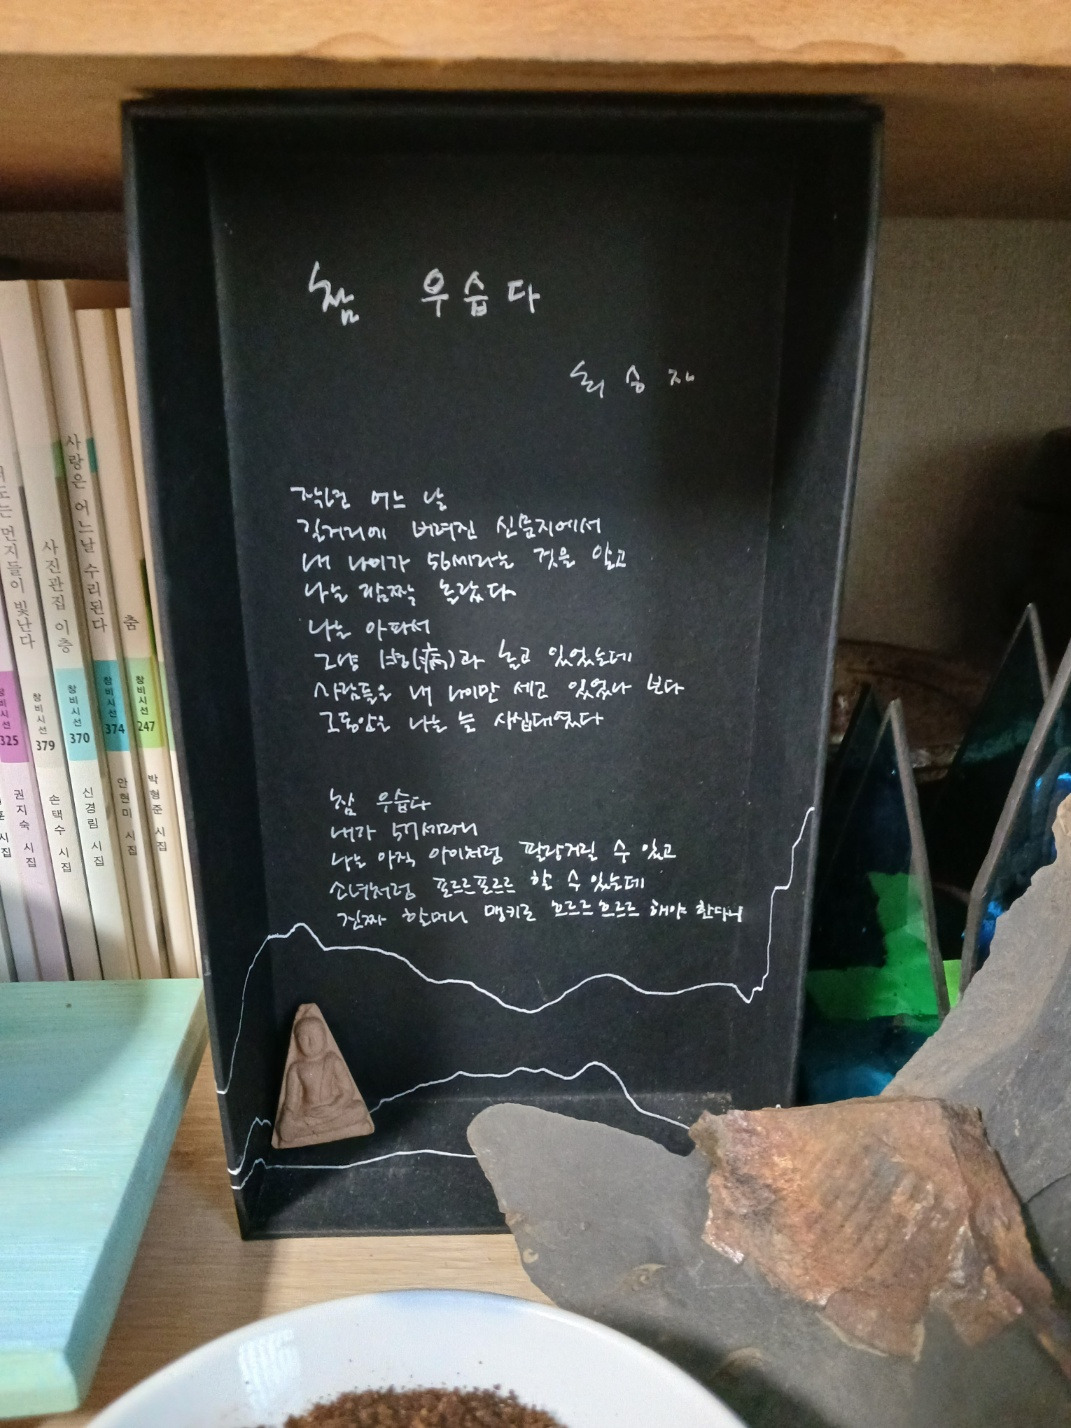 참 우습다
최승자
작년 어느 날
길거리에 버려진 신문지에서
내 나이가 56세라는 것을 알고
나는 깜짝 놀랐다
나는 아파서
그냥 병(病)과 놀고 있었는데
사람들은 내 나이만 세고 있었나 보다
그동안은 나는 늘 사십대였다
참 우습다
내가 57세라니
나는 아직 아이처럼 팔랑거릴 수 있고
소녀처럼 포르르포르르 할 수 있는데
진짜 할머니 맹키로 흐르르흐르르 해야 한다니
먼지들이 빛난다
창비시선
325
권지숙 시집
사진관집 이층
창비시선
379
손택수 시집
사랑은 어느날 수리된다
창비시선
370
신경림 시집
창비시선
374
안현미 시집
춤
창비시선
247
박형준 시집